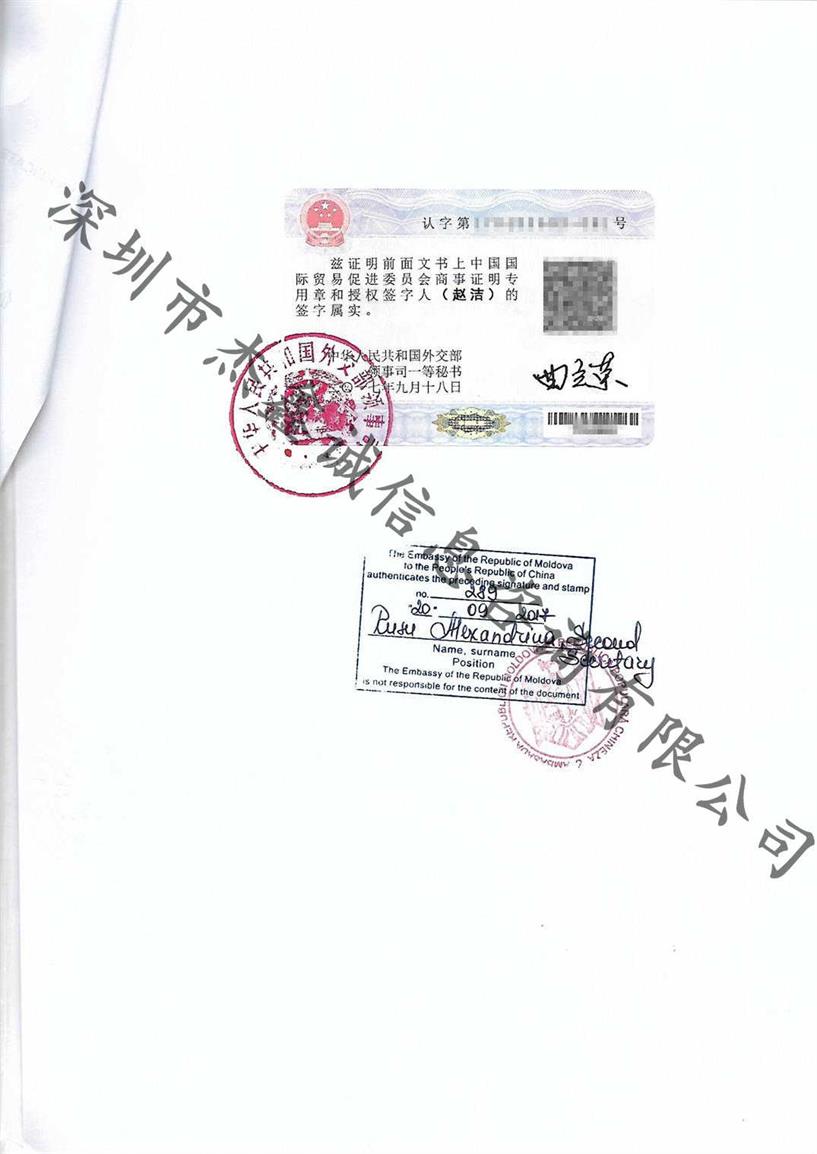 认字第 号
兹证明前面文书上中国国
际贸易促进委员会商事证明专
用章和授权签字人（赵洁）的
签字属实。
中华人民共和国外交部
领事司一等秘书
七年九月十八日
中华人民共和国外交部领事司
The Embassy of the Republic of Moldova
to the People's Republic of China
authenticates the preceding signature and stamp
no. 289
20. 09 2017
Rusu Alexandrina, Second
Secretary
Name, surname
Position
The Embassy of the Republic of Moldova
is not responsible for the content of the document
深圳市杰鑫诚信息咨询有限公司